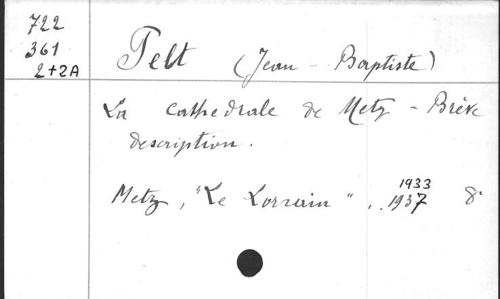 722
361
2+2A
Pelt (Jean - Baptiste)
La cathedrale de Metz - Brève
description.
1933
Metz, "Le Lorrain", . 1937 8°